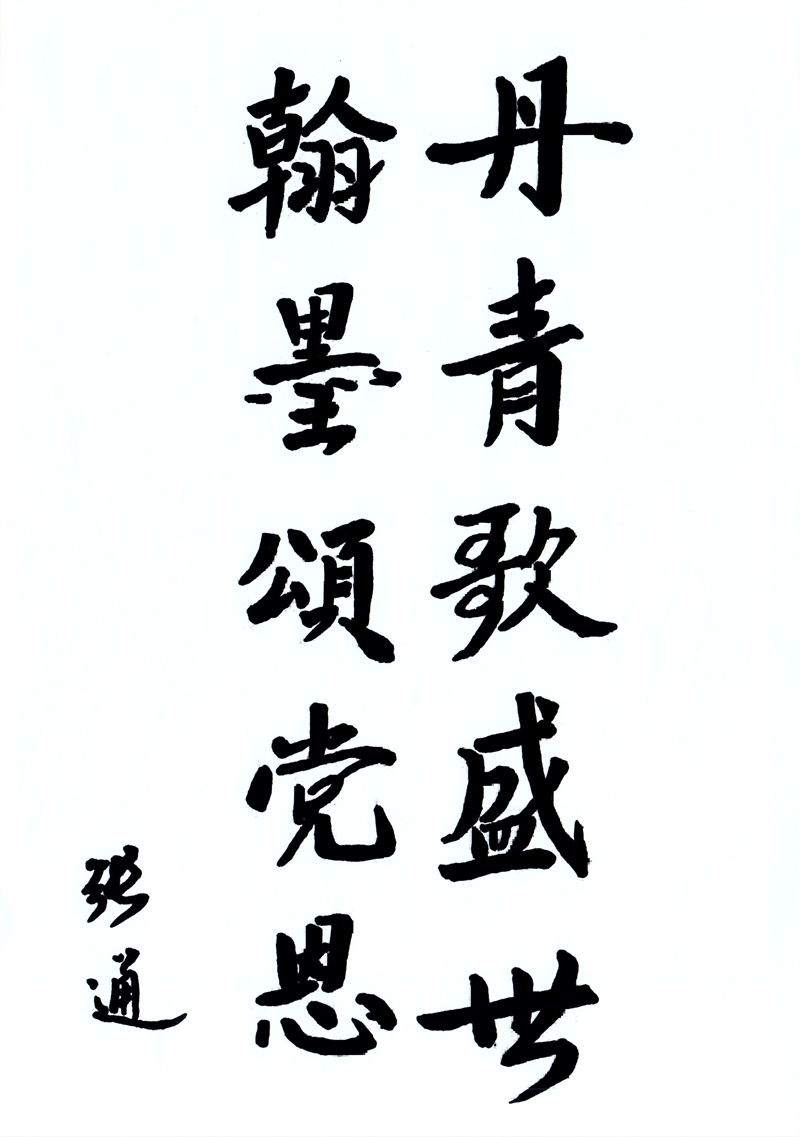 丹青歌盛世
翰墨頌党恩
张通